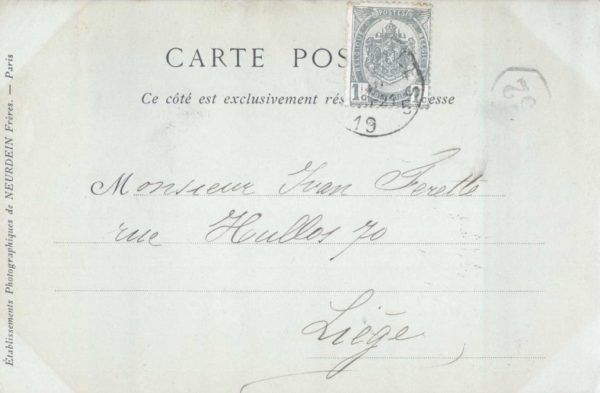 CARTE POS
Ce côté est exclusivement rés esse
POSTES
1
19
Monsieur Ivan Feretto
rue Hullos 70
Liége
Établissements Photographiques de NEURDEIN Frères. — Paris